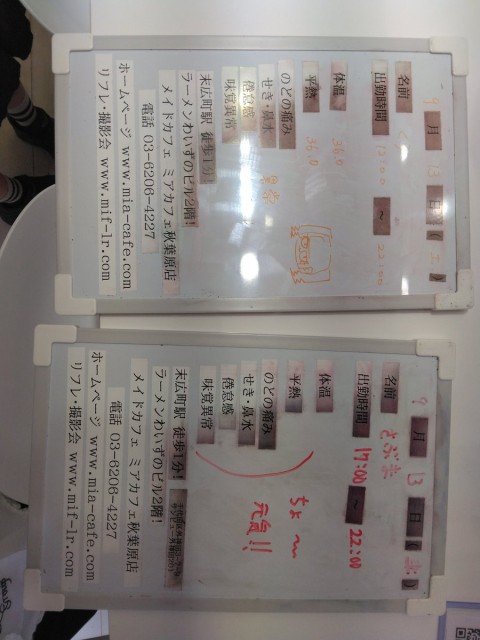 9月13日(土)
名前
出勤時間 12:00 〜 22:00
体温 36.0
平熱 36.0
のどの痛み
せき・鼻水
倦怠感
味覚異常
異常
末広町駅 徒歩1分!
ラーメンわいずのビル2階!
メイドカフェ ミアカフェ秋葉原店
電話 03-6206-4227
ホームページ www.mia-cafe.com
リフレ・撮影会 www.mif-lr.com
9月13日(土)
名前
出勤時間 17:00 〜 22:00
体温
平熱
のどの痛み
せき・鼻水
倦怠感
味覚異常
ちょ〜
元気!!
末広町駅 徒歩1分!
ラーメンわいずのビル2階!
メイドカフェ ミアカフェ秋葉原店
電話 03-6206-4227
ホームページ www.mia-cafe.com
リフレ・撮影会 www.mif-lr.com